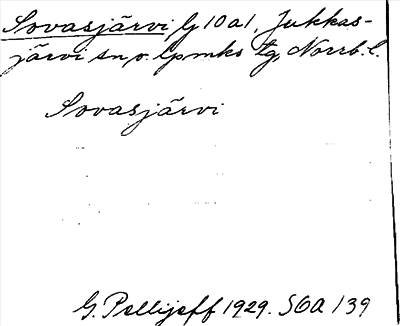 Sovasjärvi, G 10 a 1, Jukkas-
järvi sn o. lpmks tg, Norrb. l.
Sovasjärvi
G. Pellijeff 1929. SOA 139